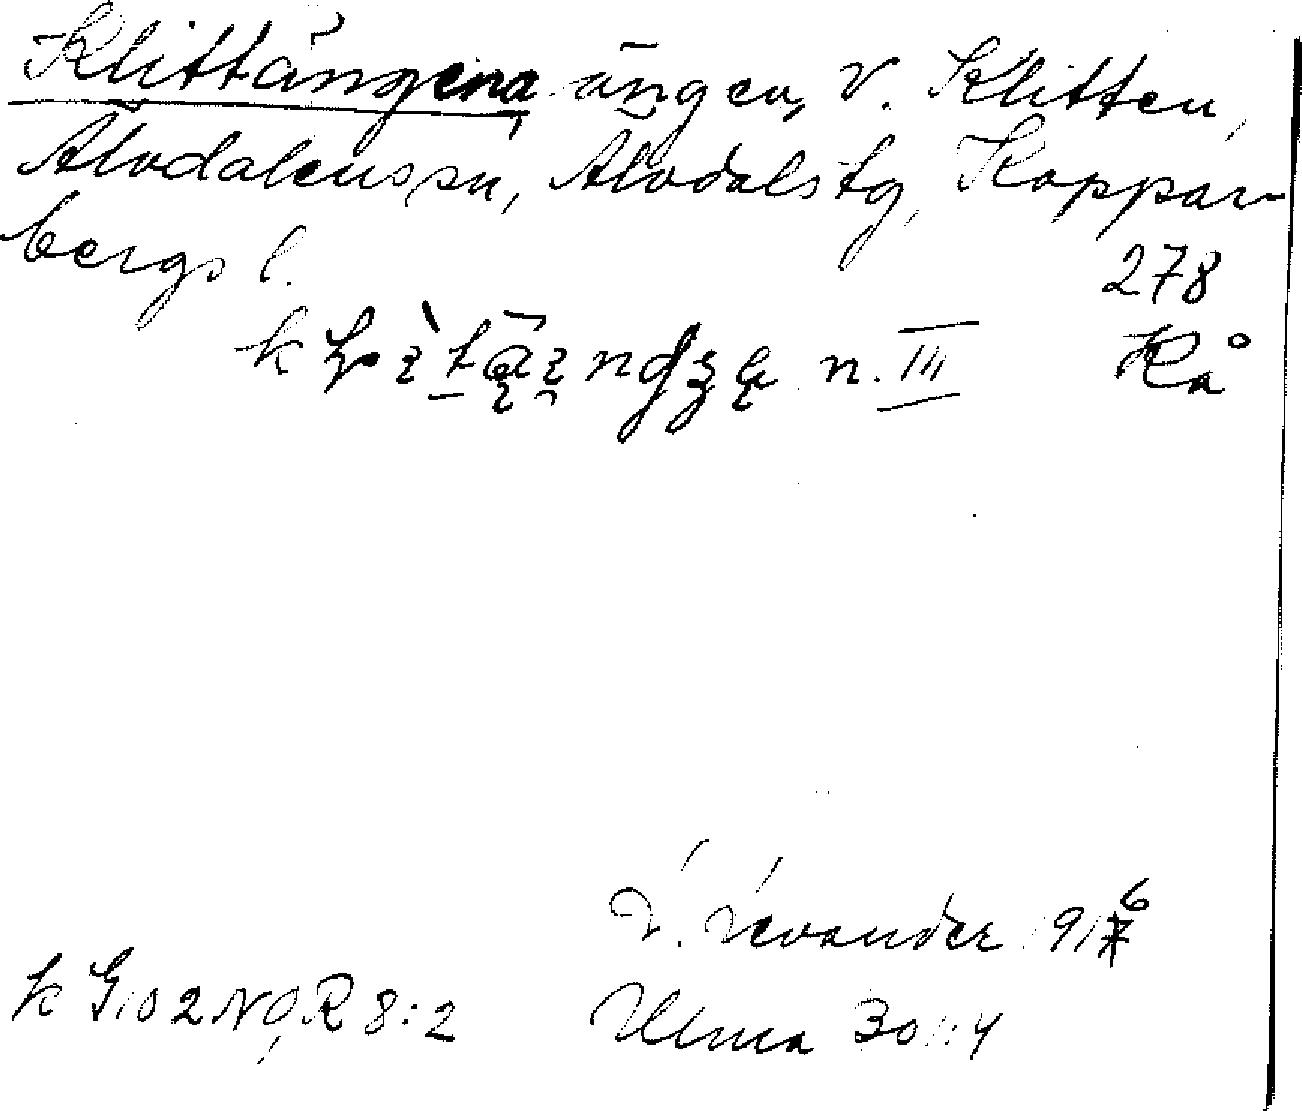 Klittängena ängen, v. Klitten,
Älvdalens sn, Älvdals tg, Koppar-
bergs l.
278
n. III
Kå
L. Levander 1916
k G 102 NO, R 8:2
Ulma 30